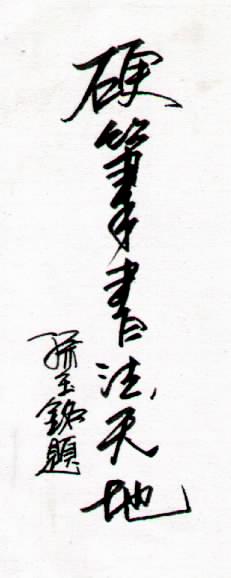 硬筆書法天地
孫玉銘題